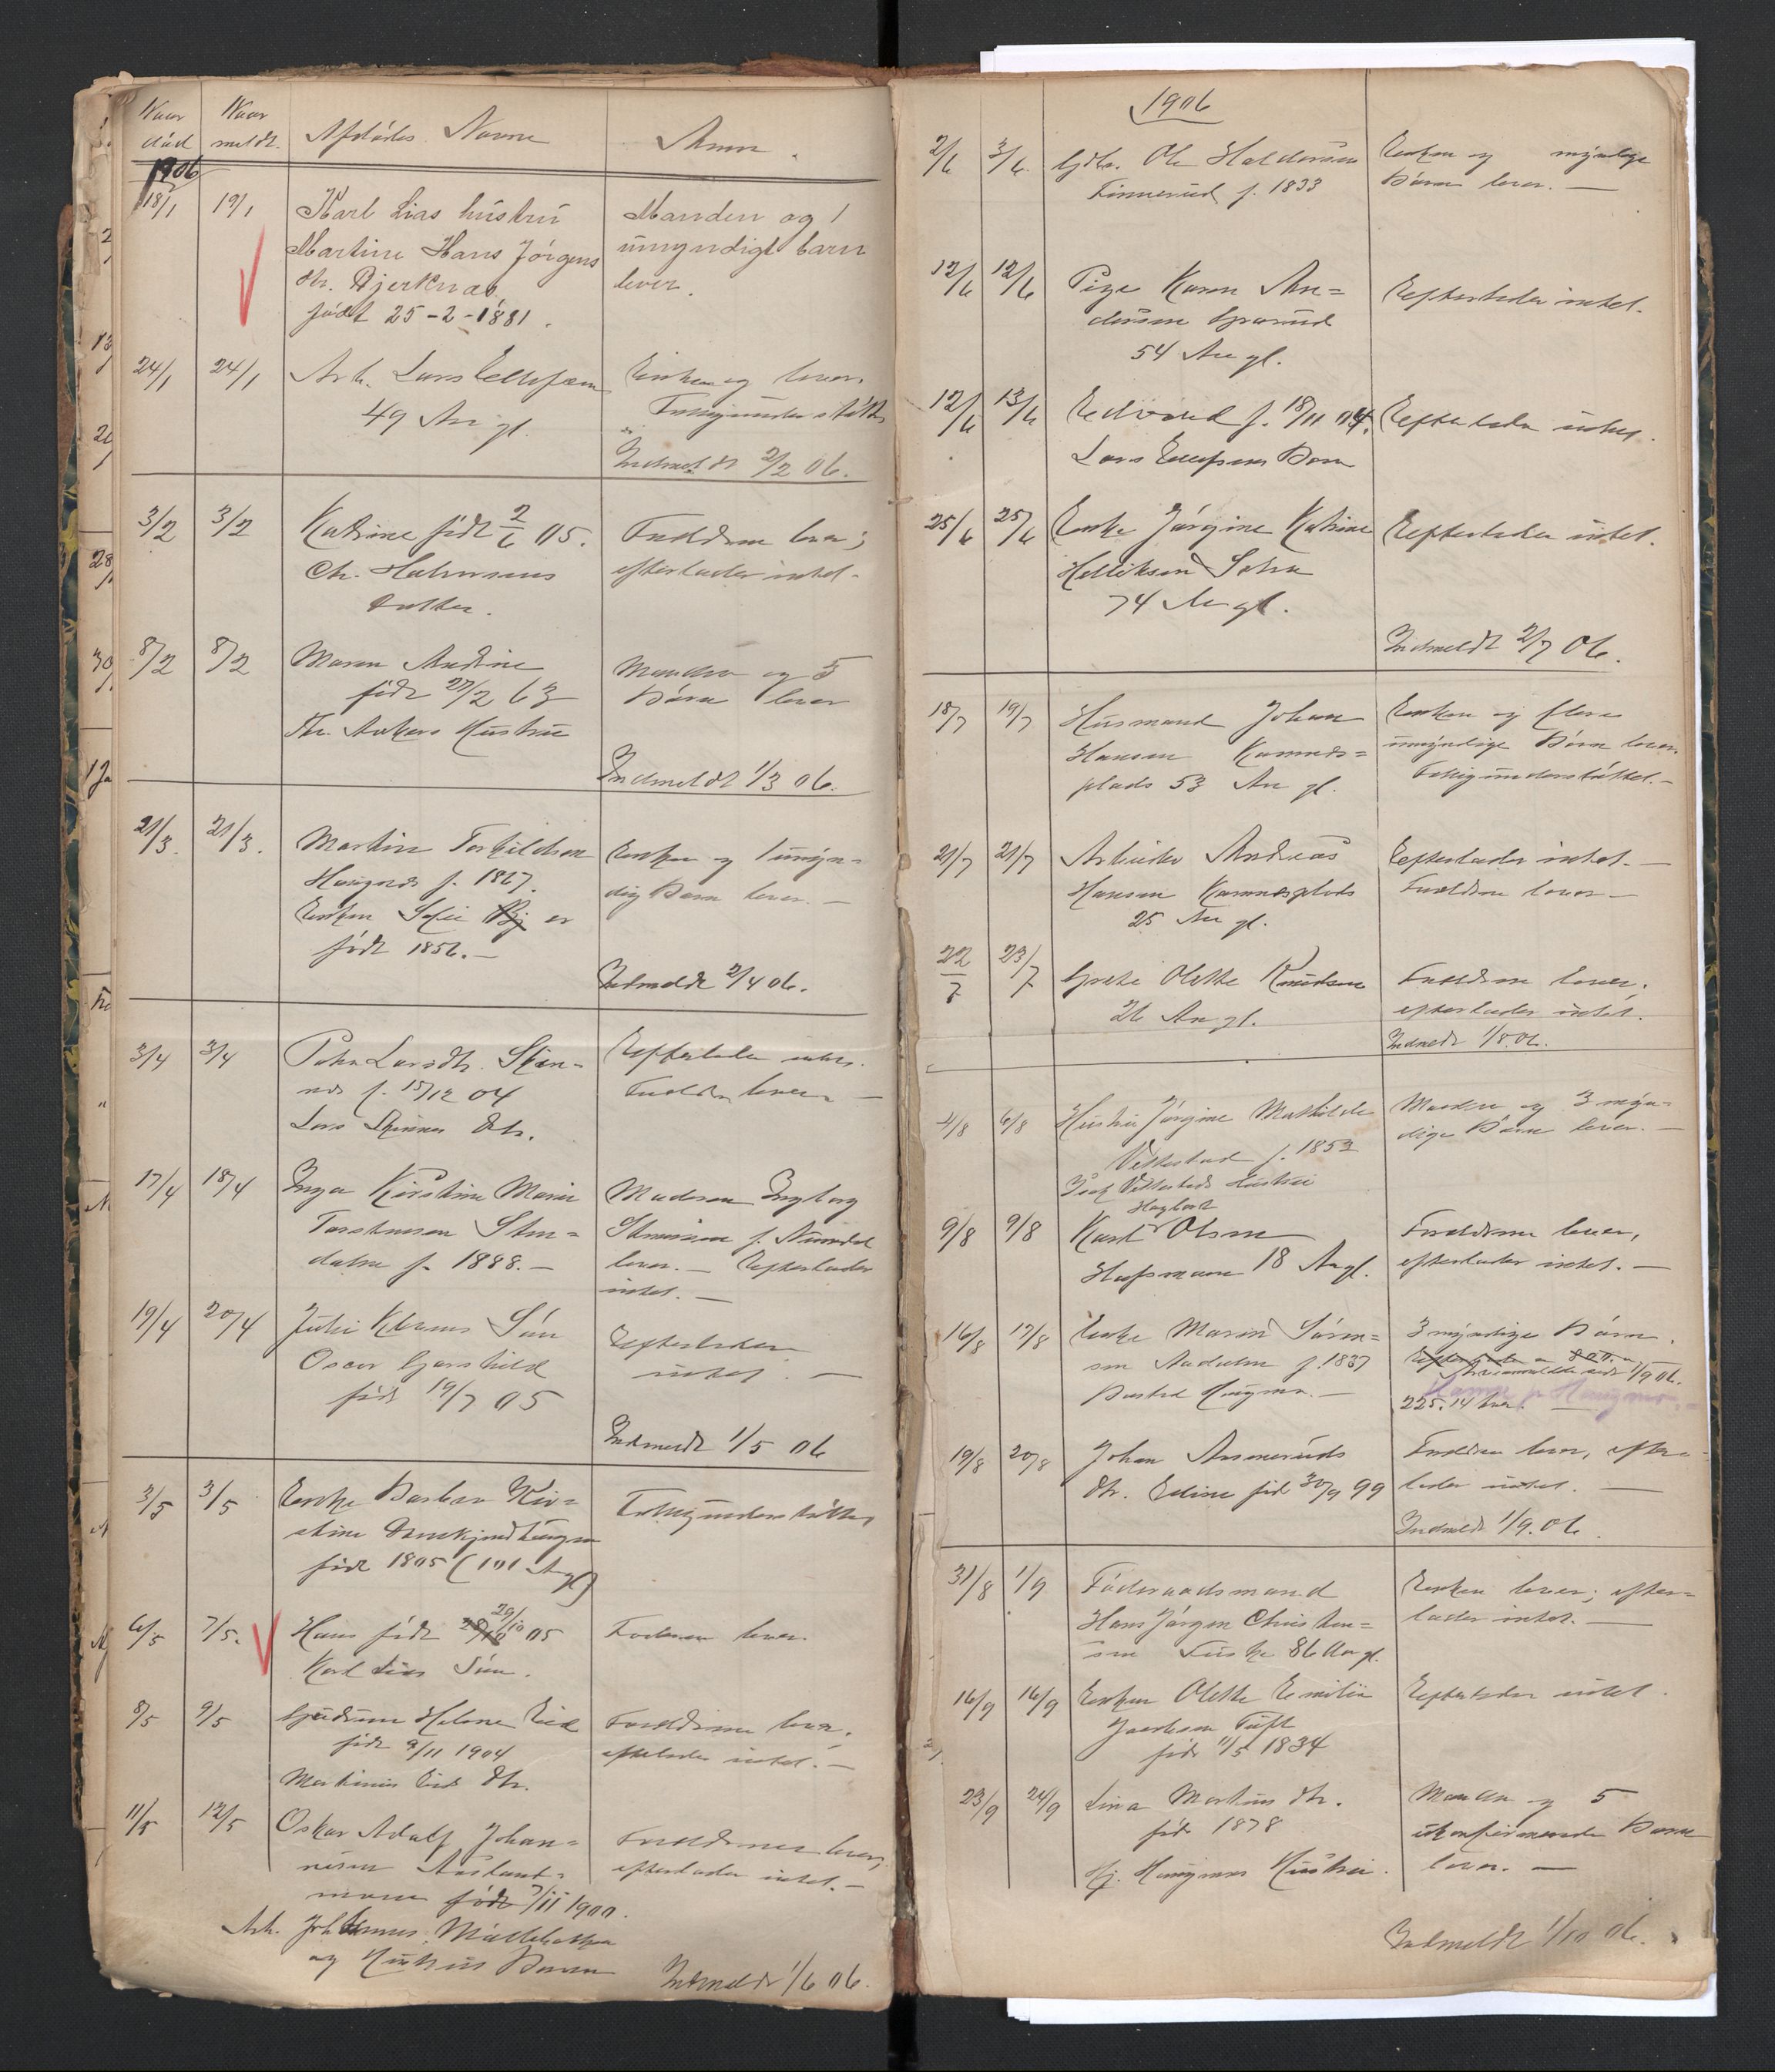 Naar død
Naar meldt
Afdødes Navne
Anm.
1906
18/1 19/1 Karl Lias hustru
Martine Hans Jørgens
dtr. Bjerknæs
født 25-2-1881.
Manden og 1
umyndigt barn
lever.
24/1 24/1 Arb. Lars Ellefsen
49 Aar gl.
Enken lever.
Fattigunderstøttet
Indmeldt 2/2 06.
3/2 3/2 Katrine født 2/6 05.
Chr. Halvorsens
Datter.
Forældrene lever;
efterlader intet.
8/2 8/2 Maren Andrine
født 27/2 63
Hustru
Manden og 5
Børn lever
Indmeldt 1/3 06.
21/3. 21/3. Martin Torkildsen
f. 1867.
Enken Sofie er
født 1856.-
Enken og 1 umyn=
dig Barn lever.-
Indmeldt 2/4 06.
3/4 3/4 Larsdtr.
f. 15/12 04
Lars Dtr.
Efterlader intet.
Forældr. lever-
17/4 18/4 Inga Kirstine Marie
Torstensen Sten=
dalen f. 1888.-
Moderen Ingborg
f. Numedal
lever.- Efterlader
intet.-
19/4 20/4 Søn
Oscar
født 19/7 05
Efterlader
intet.-
Indmeldt 1/5 06
3/5 3/5 Enke Barbra Kir=
stine
født 1805 (101 Aar gl)
Fattigunderstøttet
6/5 7/5. Hans født 29/10 05
Karl Lias Søn.
Faderen lever.
8/5 9/5 Gudrun Helene Eid
født 9/11 1904
Martinius Eids dtr.
Forældrene lever.
efterlader intet.-
11/5 12/5 Oskar Adolf Johan=
nesen Aaslant=
moen født 7/11 1900.
Arb. Johannes Møllebakken
og Hustrus Barn
Forældrene lever,
efterlader intet.-
Indmeldt 1/6 06.
1906
2/6 3/6. Gdbr. Ole Halvorsen
Finnerud f. 1833
Enken og myndige
Børn lever.-
12/6 12/6 Pige Karen An=
dersen
54 Aar gl.
Efterlader intet.
12/6 13/6 Edvard f. 18/11 04.
Lars Ellefsens Barn
Efterlader intet.
25/6 25/6 Enke Jørgine Katrine
Helliksen
74 Aar gl.
Efterlader intet.
Indmeldt 2/7 06.
18/7 19/7 Husmand Johan
Hansen Kamnes=
plads 53 Aar gl.
Enken og flere
umyndige Børn lever.
Fattigunderstøttet.-
21/7 21/7 Arbeider Andreas
Hansen Kamnesplads
25 Aar gl.
Efterlader intet.-
Forældrene lever-
22/7 23/7 Grete Olette Knudsen
26 Aar gl.
Forældrene lever.
efterlader intet.
Indmeldt 1/8 06.
4/8 6/8 Hustru Jørgine Mathilde
Vettestad f. 1853
Vettestads Hustru
Manden og 3 myn=
dige Børn lever.-
9/8 9/8 Hagbart
Karl Olsen
18 Aar gl.
Forældrene lever,
efterlader intet.-
16/8 17/8 Enke Maren Søren=
sen f. 1837
Bosted
3 myndige Børn.
1/9 06.
225.14
19/8 20/8 Johan
dtr. Edine født 30/9 99
Forældrene lever, efter=
lader intet.-
Indmeldt 1/9.06.
31/8 1/9 Føderaadsmand
Hans Jørgen Christen=
sen 86 Aar gl.
Enken lever; efter=
lader intet.-
16/9 16/9 Enken Olette Emilie
Jacobsen Tuft
født 11/5 1834
Efterlader intet.
23/9 24/9 Lina Martins dtr.
født 1878
Hustru.
Manden og 5
ukonfirmerede Børn
lever.-
Indmeldt 1/10 06.